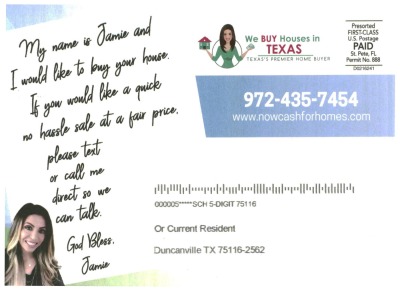 My name is Jamie and
I would like to buy your house.
If you would like a quick
no hassle sale at a fair price,
please text
or call me
direct so we
can talk.
God Bless,
Jamie
We BUY Houses in
TEXAS
TEXAS'S PREMIER HOME BUYER
Presorted
FIRST-CLASS
U.S. Postage
PAID
St. Pete, FL
Permit No. 888
972-435-7454
www.nowcashforhomes.com
000005*****SCH 5-DIGIT 75116
Or Current Resident
Duncanville TX 75116-2562